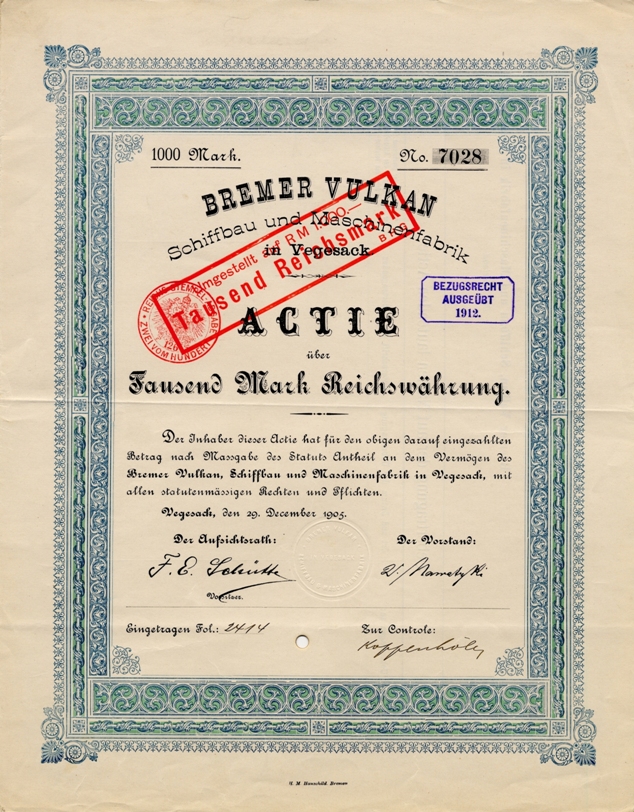 1000 Mark.
No. 7028
BREMER VULKAN
Schiffbau und Maschinenfabrik
in Vegesack.
Umgestellt auf RM 1000.—
Tausend Reichsmark
REICHS-STEMPEL-ABGABE
ZWEI VOM HUNDERT
BEZUGSRECHT
AUSGEÜBT
1912.
ACTIE
über
Tausend Mark Reichswährung.
Der Inhaber dieser Actie hat für den obigen darauf eingezahlten
Betrag nach Massgabe des Statuts Antheil an dem Vermögen des
Bremer Vulkan, Schiffbau und Maschinenfabrik in Vegesack, mit
allen statutenmässigen Rechten und Pflichten.
Vegesack, den 29. December 1905.
Der Aufsichtsrath:
Der Vorstand:
F. E. Schütte
Vorsitzer.
Eingetragen Fol.: 2414
Zur Controle:
G. M. Hauschild, Bremen